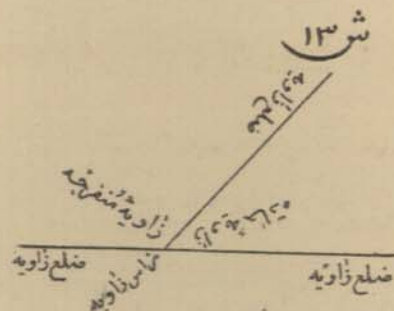 ش ۱۳
ضلع زاویه
زاویهٔ منفرجه
زاویهٔ حادّه
ضلع زاویه
رأس زاویه
ضلع زاویّه